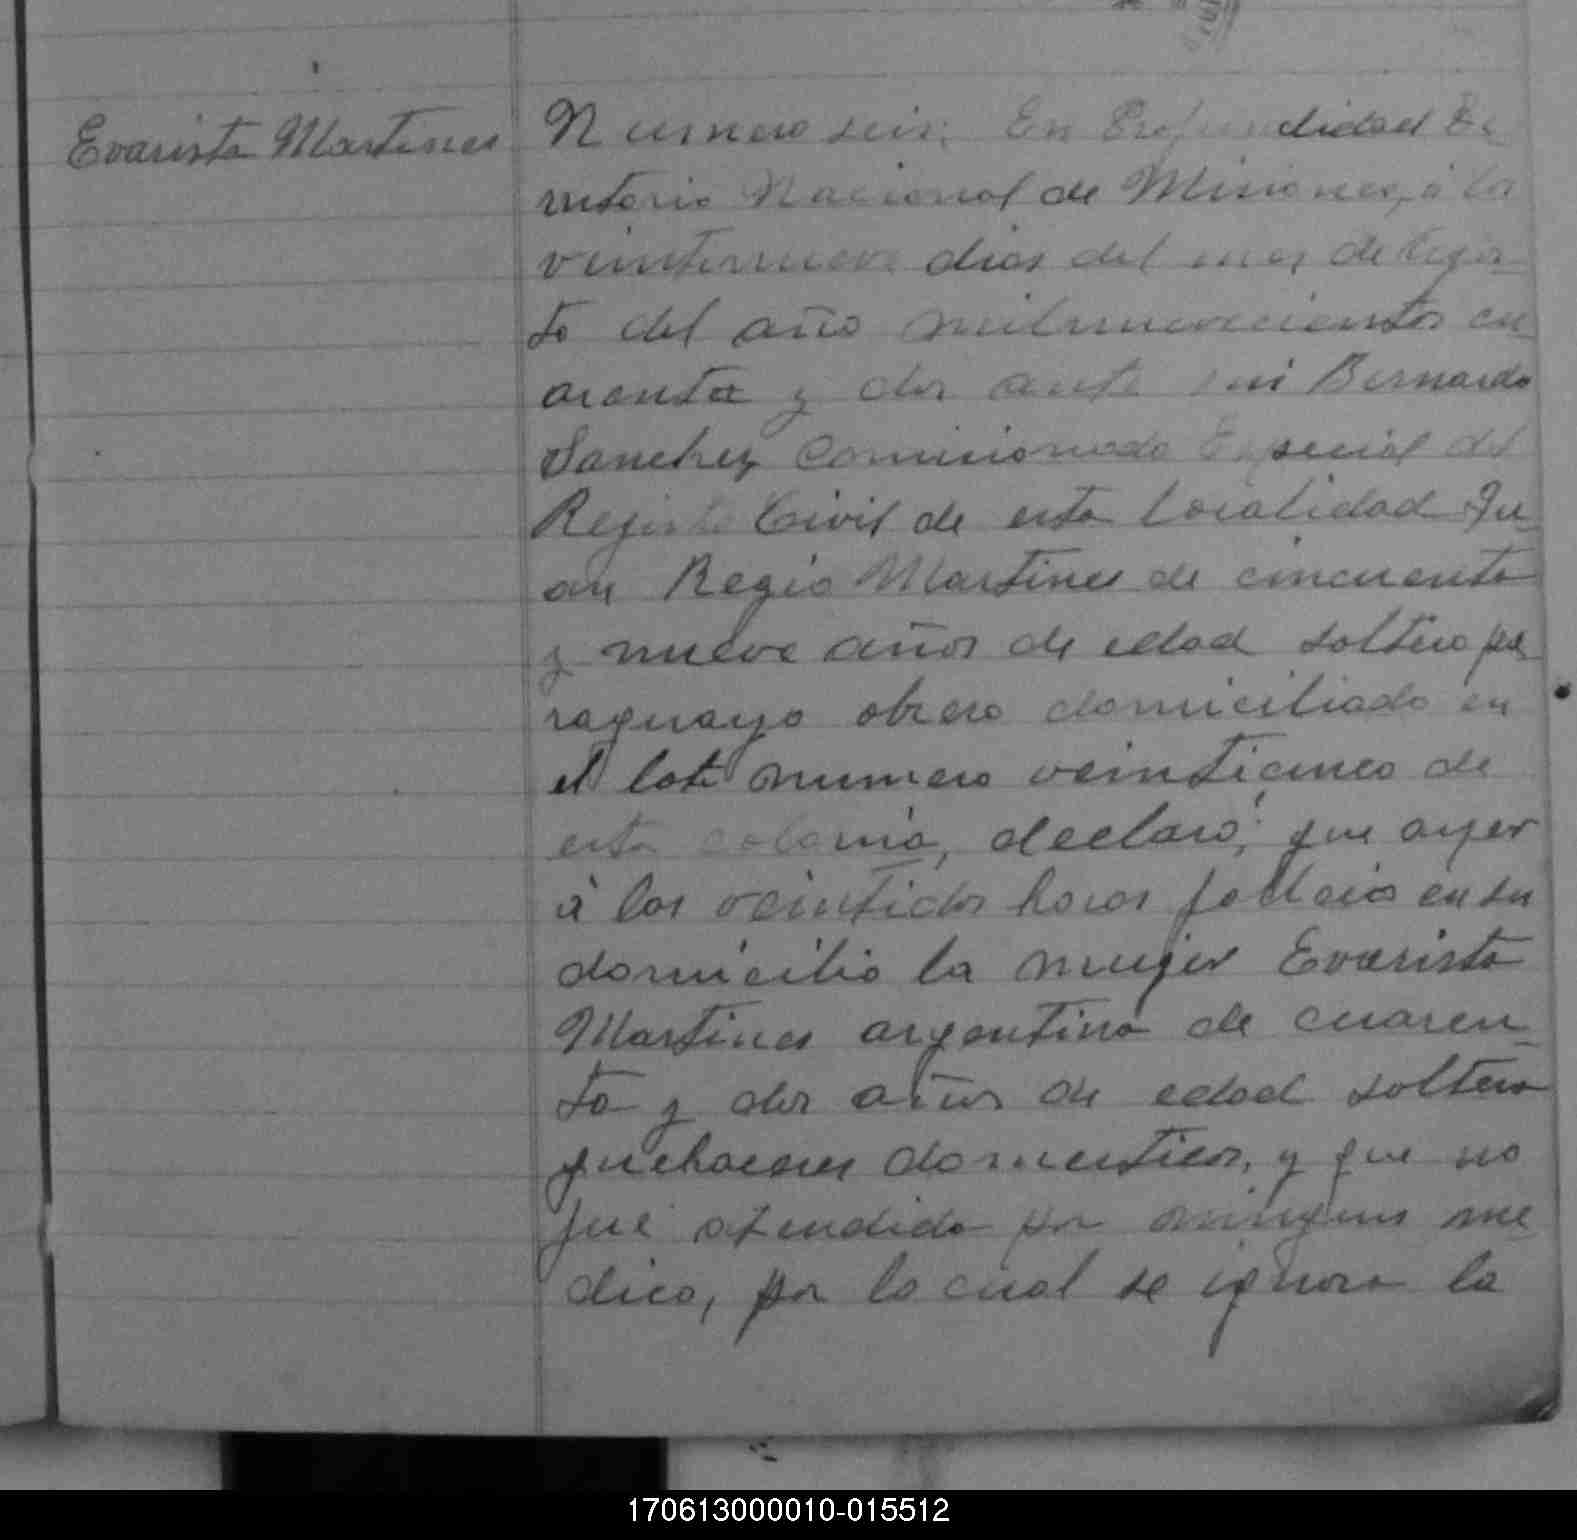 Evarista Martines
Numero seis. En Profundidad Te
rritorio Nacional de Misiones, á los
veintinueve dias del mes de Agos-
to del año milnuevecientos cu
arenta y dos ante mi Bernardo
Sanchez Comisionado Especial del
Registro Civil de esta localidad Ju-
an Regio Martines de cincuenta
y nueve años de edad soltero pa-
raguayo obrero domiciliado en
el lote numero veinticinco de
esta colonia, declaró; que ayer
á las veintidos horas falleció en su
domicilio la mujer Evarista
Martines argentina de cuaren-
ta y dos años de edad soltera
quehaceres domesticos, y que no
fué atendida por ningun me
dico, por lo cual se ignora la
170613000010-015512